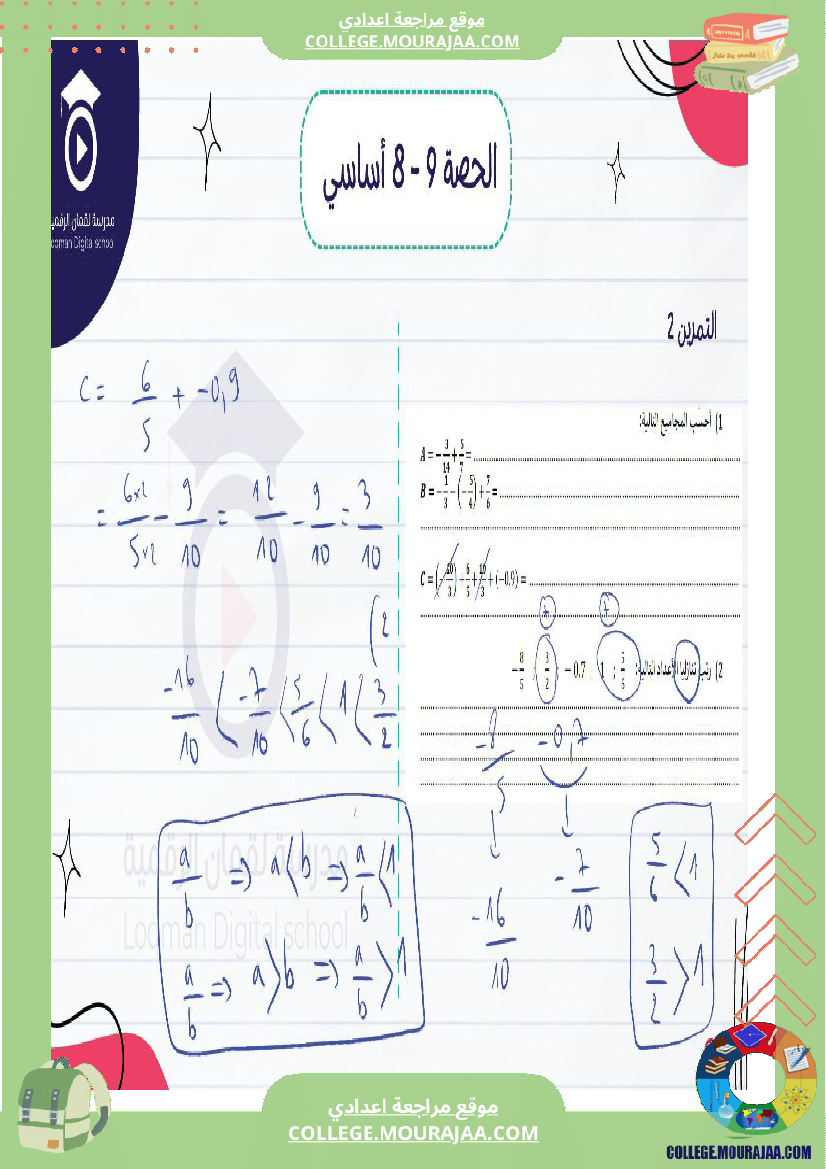 موقع مراجعة اعدادي
COLLEGE.MOURAJAA.COM
الحصة 9 - 8 أساسي
مدرسة لقمان الرقمية
Looman Digital school
التمرين 2
1) أحسب المجاميع التالية:
A = -3/14 + 5/7 =
B = -1/3 - (-5/4) + 7/6 =
C = (-10/3) + 6/5 + 10/3 + (-0.9) =
+ +
2) رتب تنازليا الأعداد التالية: 5/5 ; 1 -0.7 ; 3/2 ; -8/5
C = 6/5 + -0,9
= 6×2/5×2 - 9/10 = 12/10 - 9/10 = 3/10
(2
-16/10 < -7/10 < 5/6 < 1 < 3/2
-8/5 -0,7
-16/10 -7/10
5/6 < 1
3/2 > 1
a/b => a < b => a/b < 1
a/b => a > b => a/b > 1
مدرسة لقمان الرقمية
Looman Digital school
موقع مراجعة اعدادي
COLLEGE.MOURAJAA.COM
COLLEGE.MOURAJAA.COM